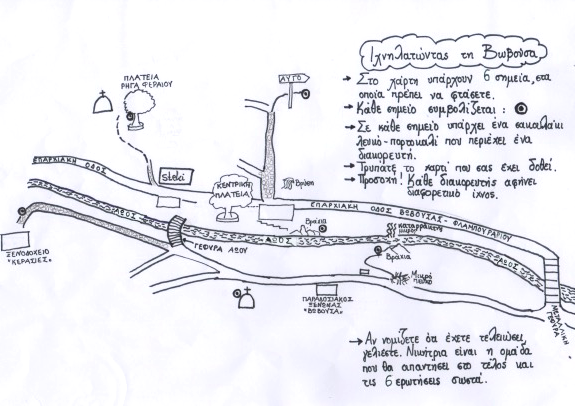 Ιχνηλατώντας τη Βωβούσα
→ Στο χάρτη υπάρχουν 6 σημεία, στα
οποία πρέπει να φτάσετε.
→ Κάθε σημείο συμβολίζεται :
→ Σε κάθε σημείο υπάρχει ένα σακουλάκι
λευκό-πορτοκαλί που περιέχει ένα
διακορευτή.
→ Τρυπάτε το χαρτί που σας έχει δοθεί.
→ Προσοχή! Κάθε διακορευτής αφήνει
διαφορετικό ίχνος.
ΠΛΑΤΕΙΑ
ΡΗΓΑ ΦΕΡΑΙΟΥ
ΑΥΓΟ
ΕΠΑΡΧΙΑΚΗ ΟΔΟΣ
Steki
ΚΕΝΤΡΙΚΗ
ΠΛΑΤΕΙΑ
Βρύση
ΕΠΑΡΧΙΑΚΗ ΟΔΟΣ ΒΩΒΟΥΣΑΣ - ΦΛΑΜΠΟΥΡΑΡΙΟΥ
Βράχια
ΑΩΟΣ
ΑΩΟΣ
ΑΩΟΣ
ΓΕΦΥΡΑ ΑΩΟΥ
Βράχια
Μικρό
ΞΕΝΟΔΟΧΕΙΟ
"ΚΕΡΑΣΙΕΣ"
ΠΑΡΑΔΟΣΙΑΚΟΣ
ΞΕΝΩΝΑΣ
"ΒΩΒΟΥΣΑ"
ΜΕΤΑΛΛΙΚΗ
ΓΕΦΥΡΑ
→ Αν νομίζετε ότι έχετε τελειώσει,
γελιέστε. Νικήτρια είναι η ομάδα
που θα απαντήσει στο τέλος και
τις 6 ερωτήσεις σωστά.